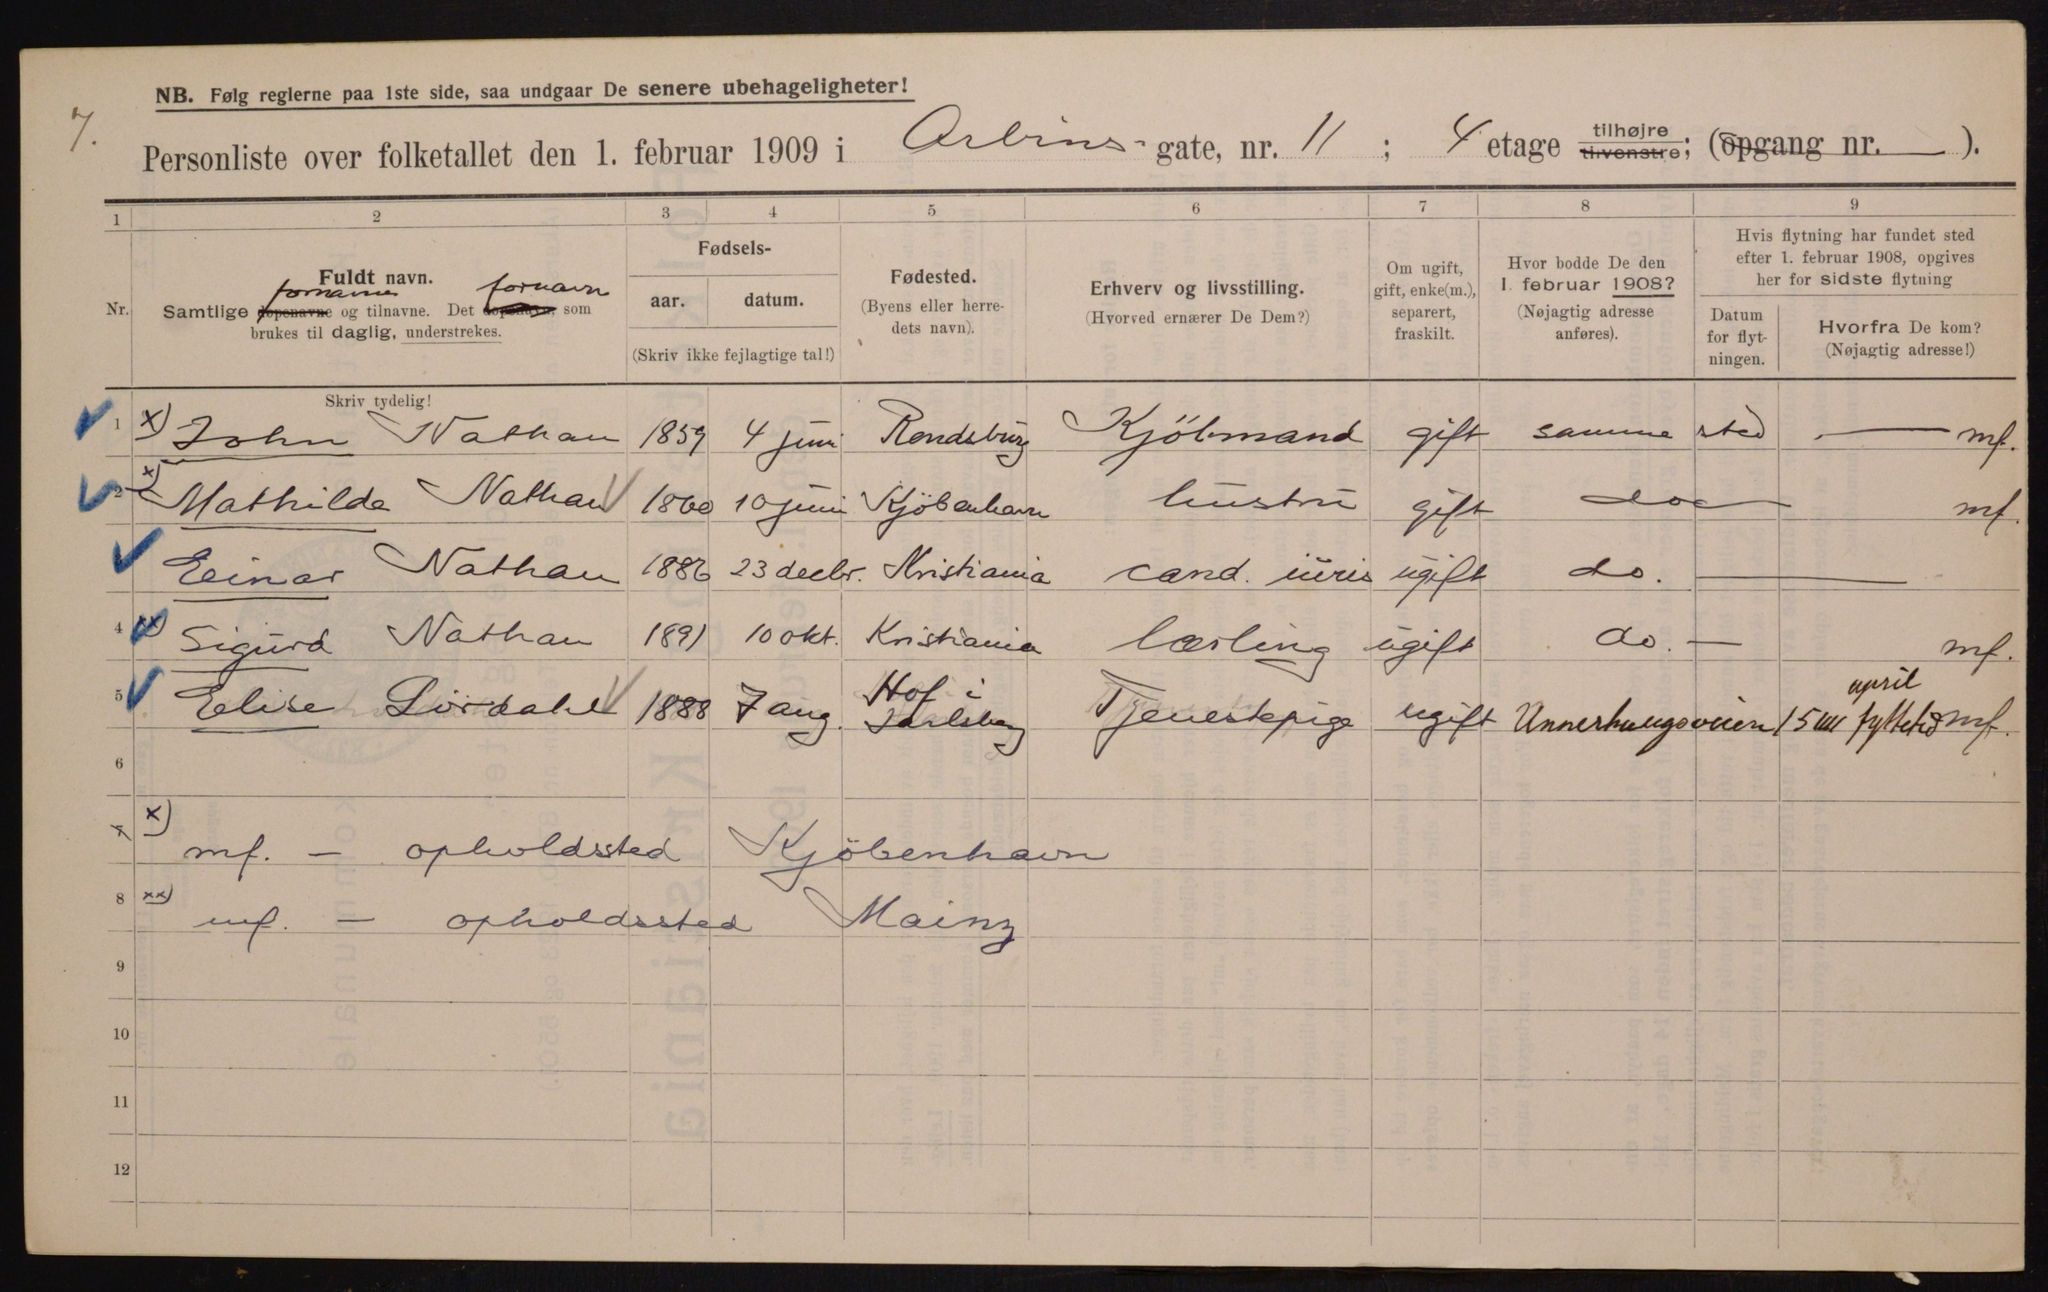 7.
NB. Følg reglerne paa 1ste side, saa undgaar De senere ubehageligheter!
Personliste over folketallet den 1. februar 1909 i Arbins- gate, nr. 11 ; 4 etage tilhøjre tilvenstre; (opgang nr. ).
1 2 3 4 5 6 7 8 9
Nr.
Fuldt navn.
fornavne fornavn
Samtlige døpenavne og tilnavne. Det døpenavn som
brukes til daglig, understrekes.
Skriv tydelig!
Fødsels-
aar. datum.
(Skriv ikke fejlagtige tal!)
Fødested.
(Byens eller herre-
dets navn).
Erhverv og livsstilling.
(Hvorved ernærer De Dem?)
Om ugift,
gift, enke(m.),
separert,
fraskilt.
Hvor bodde De den
1. februar 1908?
(Nøjagtig adresse
anføres).
Hvis flytning har fundet sted
efter 1. februar 1908, opgives
her for sidste flytning
Datum
for flyt-
ningen.
Hvorfra De kom?
(Nøjagtig adresse!)
1 x) John Nathan 1859 4 juni Rendsburg Kjöbmand gift samme sted — mf.
2 x) Mathilde Nathan 1860 10 juni Kjöbenhavn hustru gift do — mf.
Einar Nathan 1886 23 decbr. Kristiania cand. iuris ugift do. —
4 xx) Sigurd Nathan 1891 10 okt. Kristiania lærling ugift do. — mf.
5 Elise Lördahl 1888 7 aug. Hof i Jarlsberg Tjenestepige ugift 15 april mf.
6
7 x) mf. — opholdssted Kjöbenhavn
8 xx) mf. — opholdssted Mainz
9
10
11
12